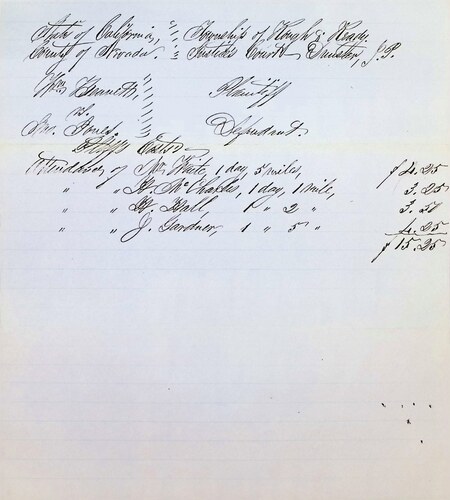 State of California, Township of Rough & Ready
County of Nevada. Justice's Court
Wm Plaintiff
vs.
Jno. Jones. Defendant.
Pltffs Costs
Attendance of Jno White, 1 day, 5 miles, $ 4.25
" " H. McCharles, 1 day, 1 mile, 3.25
" " H. Hall, 1 " 2 " 3.50
" " J. Gardner, 1 " 5 " 4.25
$ 15.25